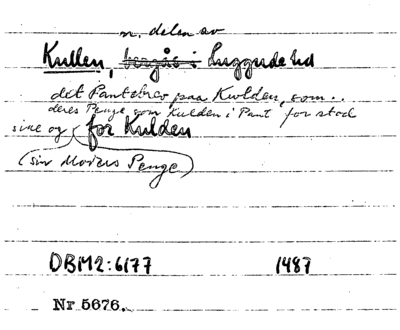 n. delen av
Kullen, bergås i Luggude hd
det Pantebrev paa Kwlden, som..
deres Penge som Kulden i Pant for stod
sine og for Kulden
(sin Moders Penge)
DBM2:6177 1487
Nr 5676.